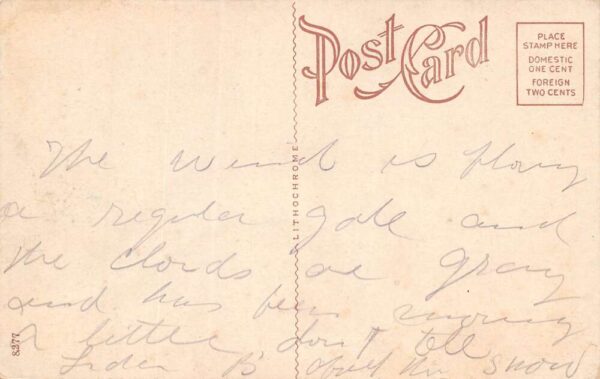 Post Card
PLACE
STAMP HERE
DOMESTIC
ONE CENT
FOREIGN
TWO CENTS
LITHOCHROME
8377
The wind is bloing
a reguler gale and
the clouds are gray
and has been snowing
a little don't tell
B about the snow